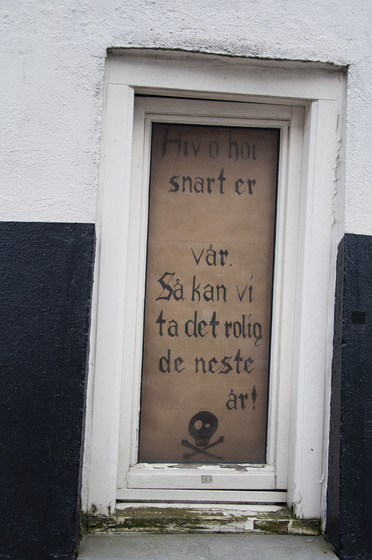 Hiv o hoi
snart er
vår.
Så kan vi
ta det rolig
de neste
år!